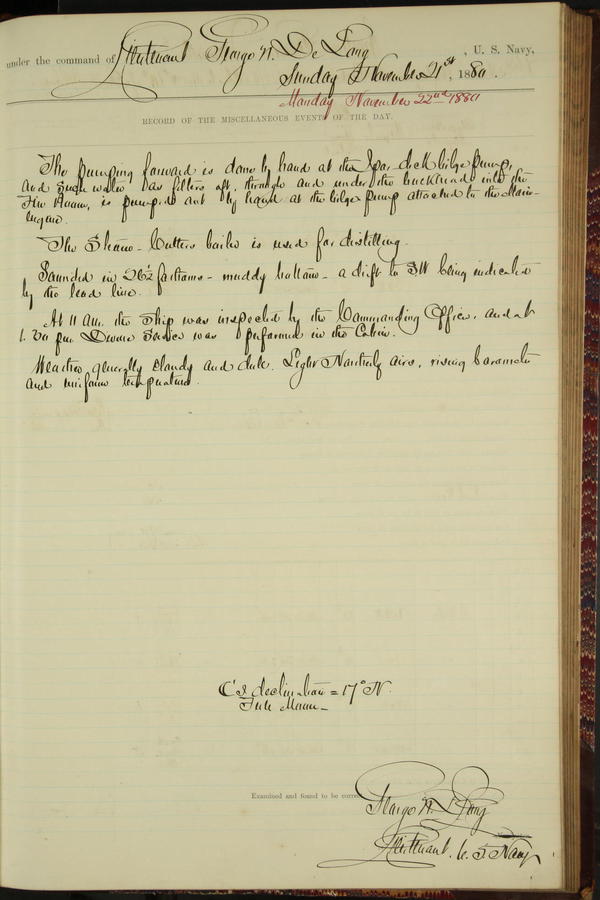 under the command of Lieutenant George W. De Long, U. S. Navy,
Sunday November 21st, 1880.
Monday November 22nd 1880
RECORD OF THE MISCELLANEOUS EVENTS OF THE DAY.
The pumping forward is done by hand at the Spar-deck bilge pump,
and such water as filters aft, through and under the bulkhead into the
Fire Room, is pumped out by hand at the bilge pump attached to the Main-
Engine.
The Steam-Cutters boiler is used for distilling.
Sounded in 26½ fathoms - muddy bottom - a drift to SW being indicated
by the lead line.
At 11 a.m. the Ship was inspected by the Commanding Officer, and at
p.m. Divine Service was performed in the Cabin.
Weather generally cloudy and dull. Light Northerly airs, rising barometer
and uniform temperature.
C's declination = 17° N.
Full Moon -
Examined and found to be correct
George W. De Long
Lieutenant U. S. Navy